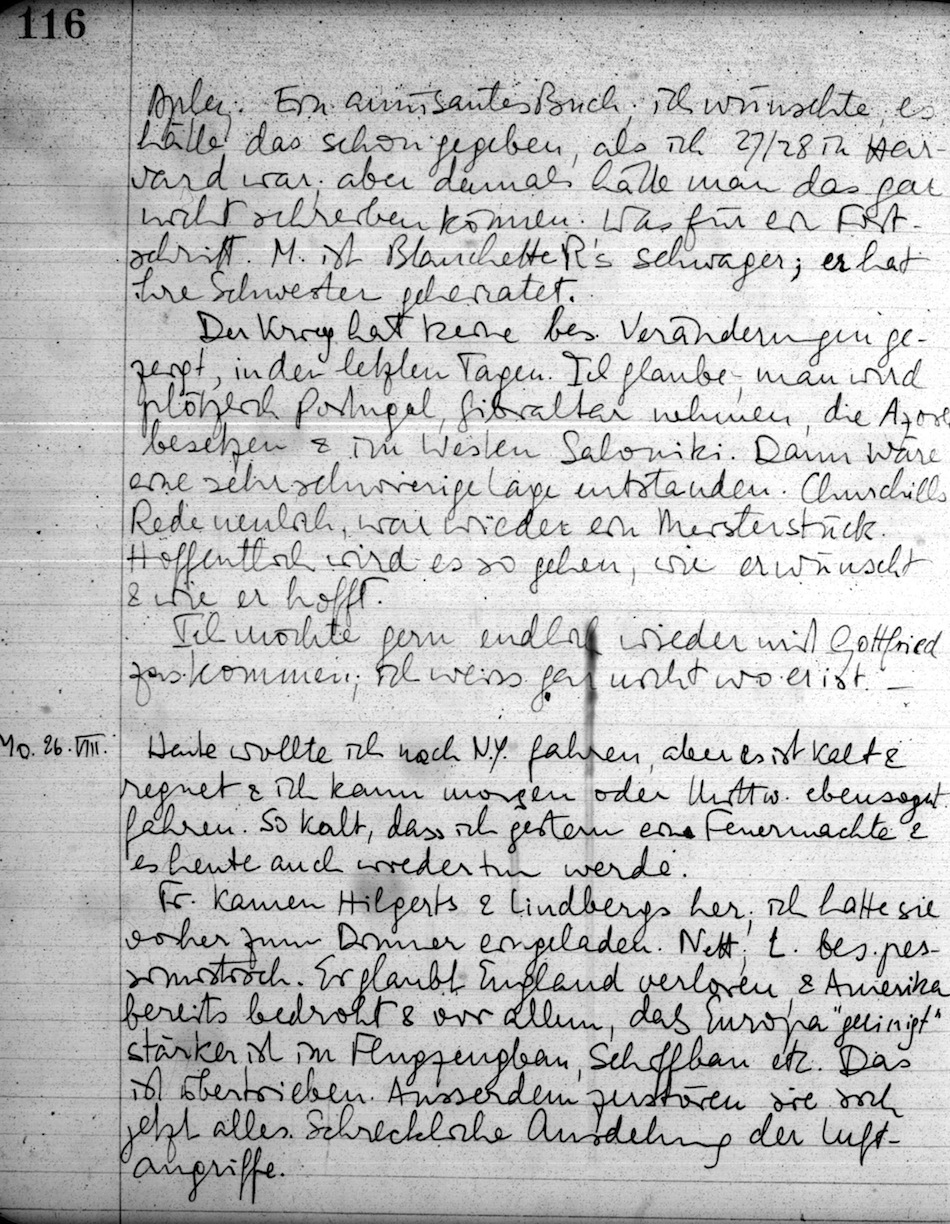 116
Apley. Ein amüsantes Buch; ich wünschte, es
hätte das schon gegeben, als ich 27/28 in Har-
vard war; aber damals hätte man das gar
nicht schreiben können. Was für ein Fort-
schritt. M. ist Blanchette R's Schwager; er hat
ihre Schwester geheiratet.
Der Krieg hat keine bes. Veränderungen ge-
zeigt, in den letzten Tagen. Ich glaube, man wird
plötzlich Portugal, Gibraltar nehmen, die Azoren
besetzen & im Westen Saloniki. Dann wäre
eine sehr schwierige Lage entstanden. Churchills
Rede neulich, war wieder ein Meisterstück.
Hoffentlich wird es so gehen, wie er wünscht
& wie er hofft.
Ich möchte gern endlich wieder mit Gottfried
zus.kommen; ich weiss gar nicht wo er ist. —
Mo. 26. VIII. Heute wollte ich nach N.Y. fahren, aber es ist kalt &
regnet & ich kann morgen oder Mittw. ebensogut
fahren. So kalt, dass ich gestern ein Feuer machte &
es heute auch wieder tun werde.
Fr. kamen Hilgerts & Lindbergs her; ich hatte sie
vorher zum Dinner eingeladen. Nett; L. bes. pes-
simistisch. Er glaubt England verloren, & Amerika
bereits bedroht & vor allem, daß Europa "geeinigt"
stärker ist im Flugzeugbau, Schiffbau etc. Das
ist übertrieben. Ausserdem zerstören sie sich
jetzt alles. Schreckliche Ausdehnung der Luft-
angriffe.